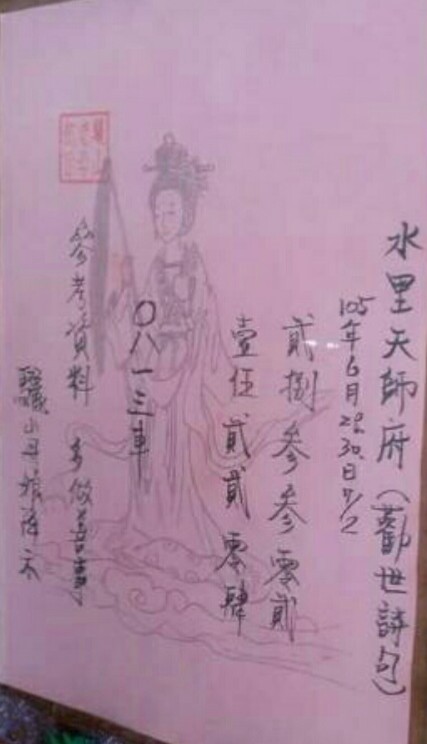 水里天師府(勸世詩句)
105年6月28.30.日7/2
貳捌 参参 零貳
壹伍 貳貳 零肆
0八一三車
參考資料 多做善事
山母娘